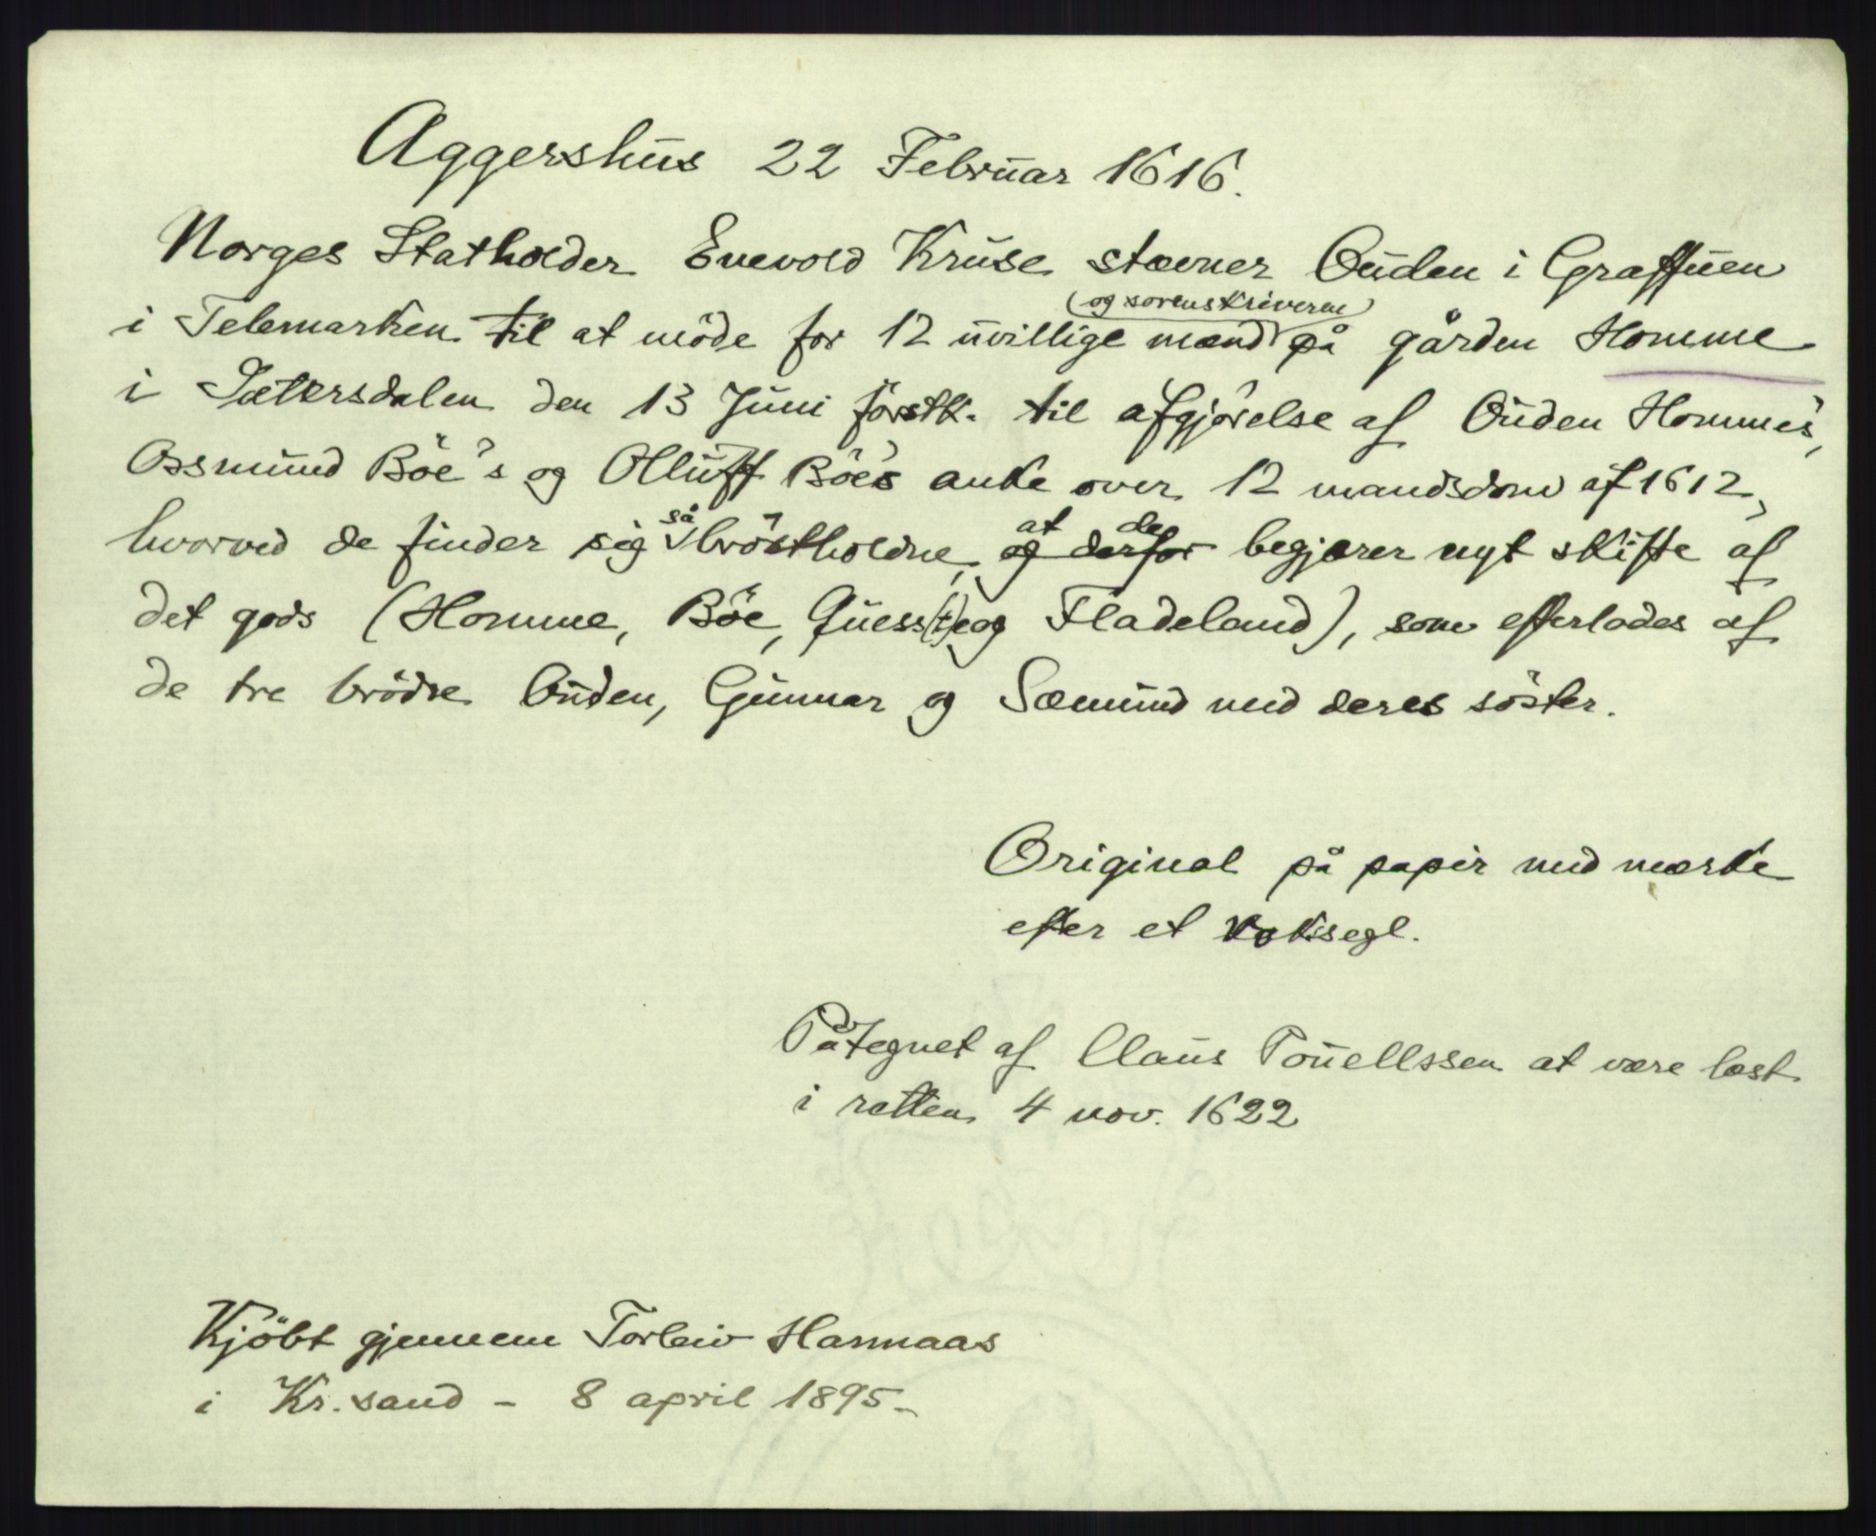 Aggershus 22 Februar 1616.
Norges Statholder Enevold Kruse stævner Ouden i Graffuen
(og sorenskriveren)
i Telemarken til at möde for 12 uvillige mænd på gården Homme
i Sætersdalen den 13 Juni förstk. til afgjörelse af Ouden Hommes,
Assmund Böe's og Olluff Böes anke over 12 mandsdom af 1612,
så at de
hvorved de finder sig bröstholdne, og derfor begjærer nyt skifte af
det gods (Homme, Böe, Quess(t)e og Fladeland), som efterlodes af
de tre brödre Ouden, Gunnar og Sæmund med deres söster.
Original på papir med mærke
efter et vokssegl.
Påtegnet af Claus Pouellssen at være læst
i retten 4 nov. 1622
Kjöbt gjennem Torleiv Hannaas
i Kr.sand - 8 april 1895.